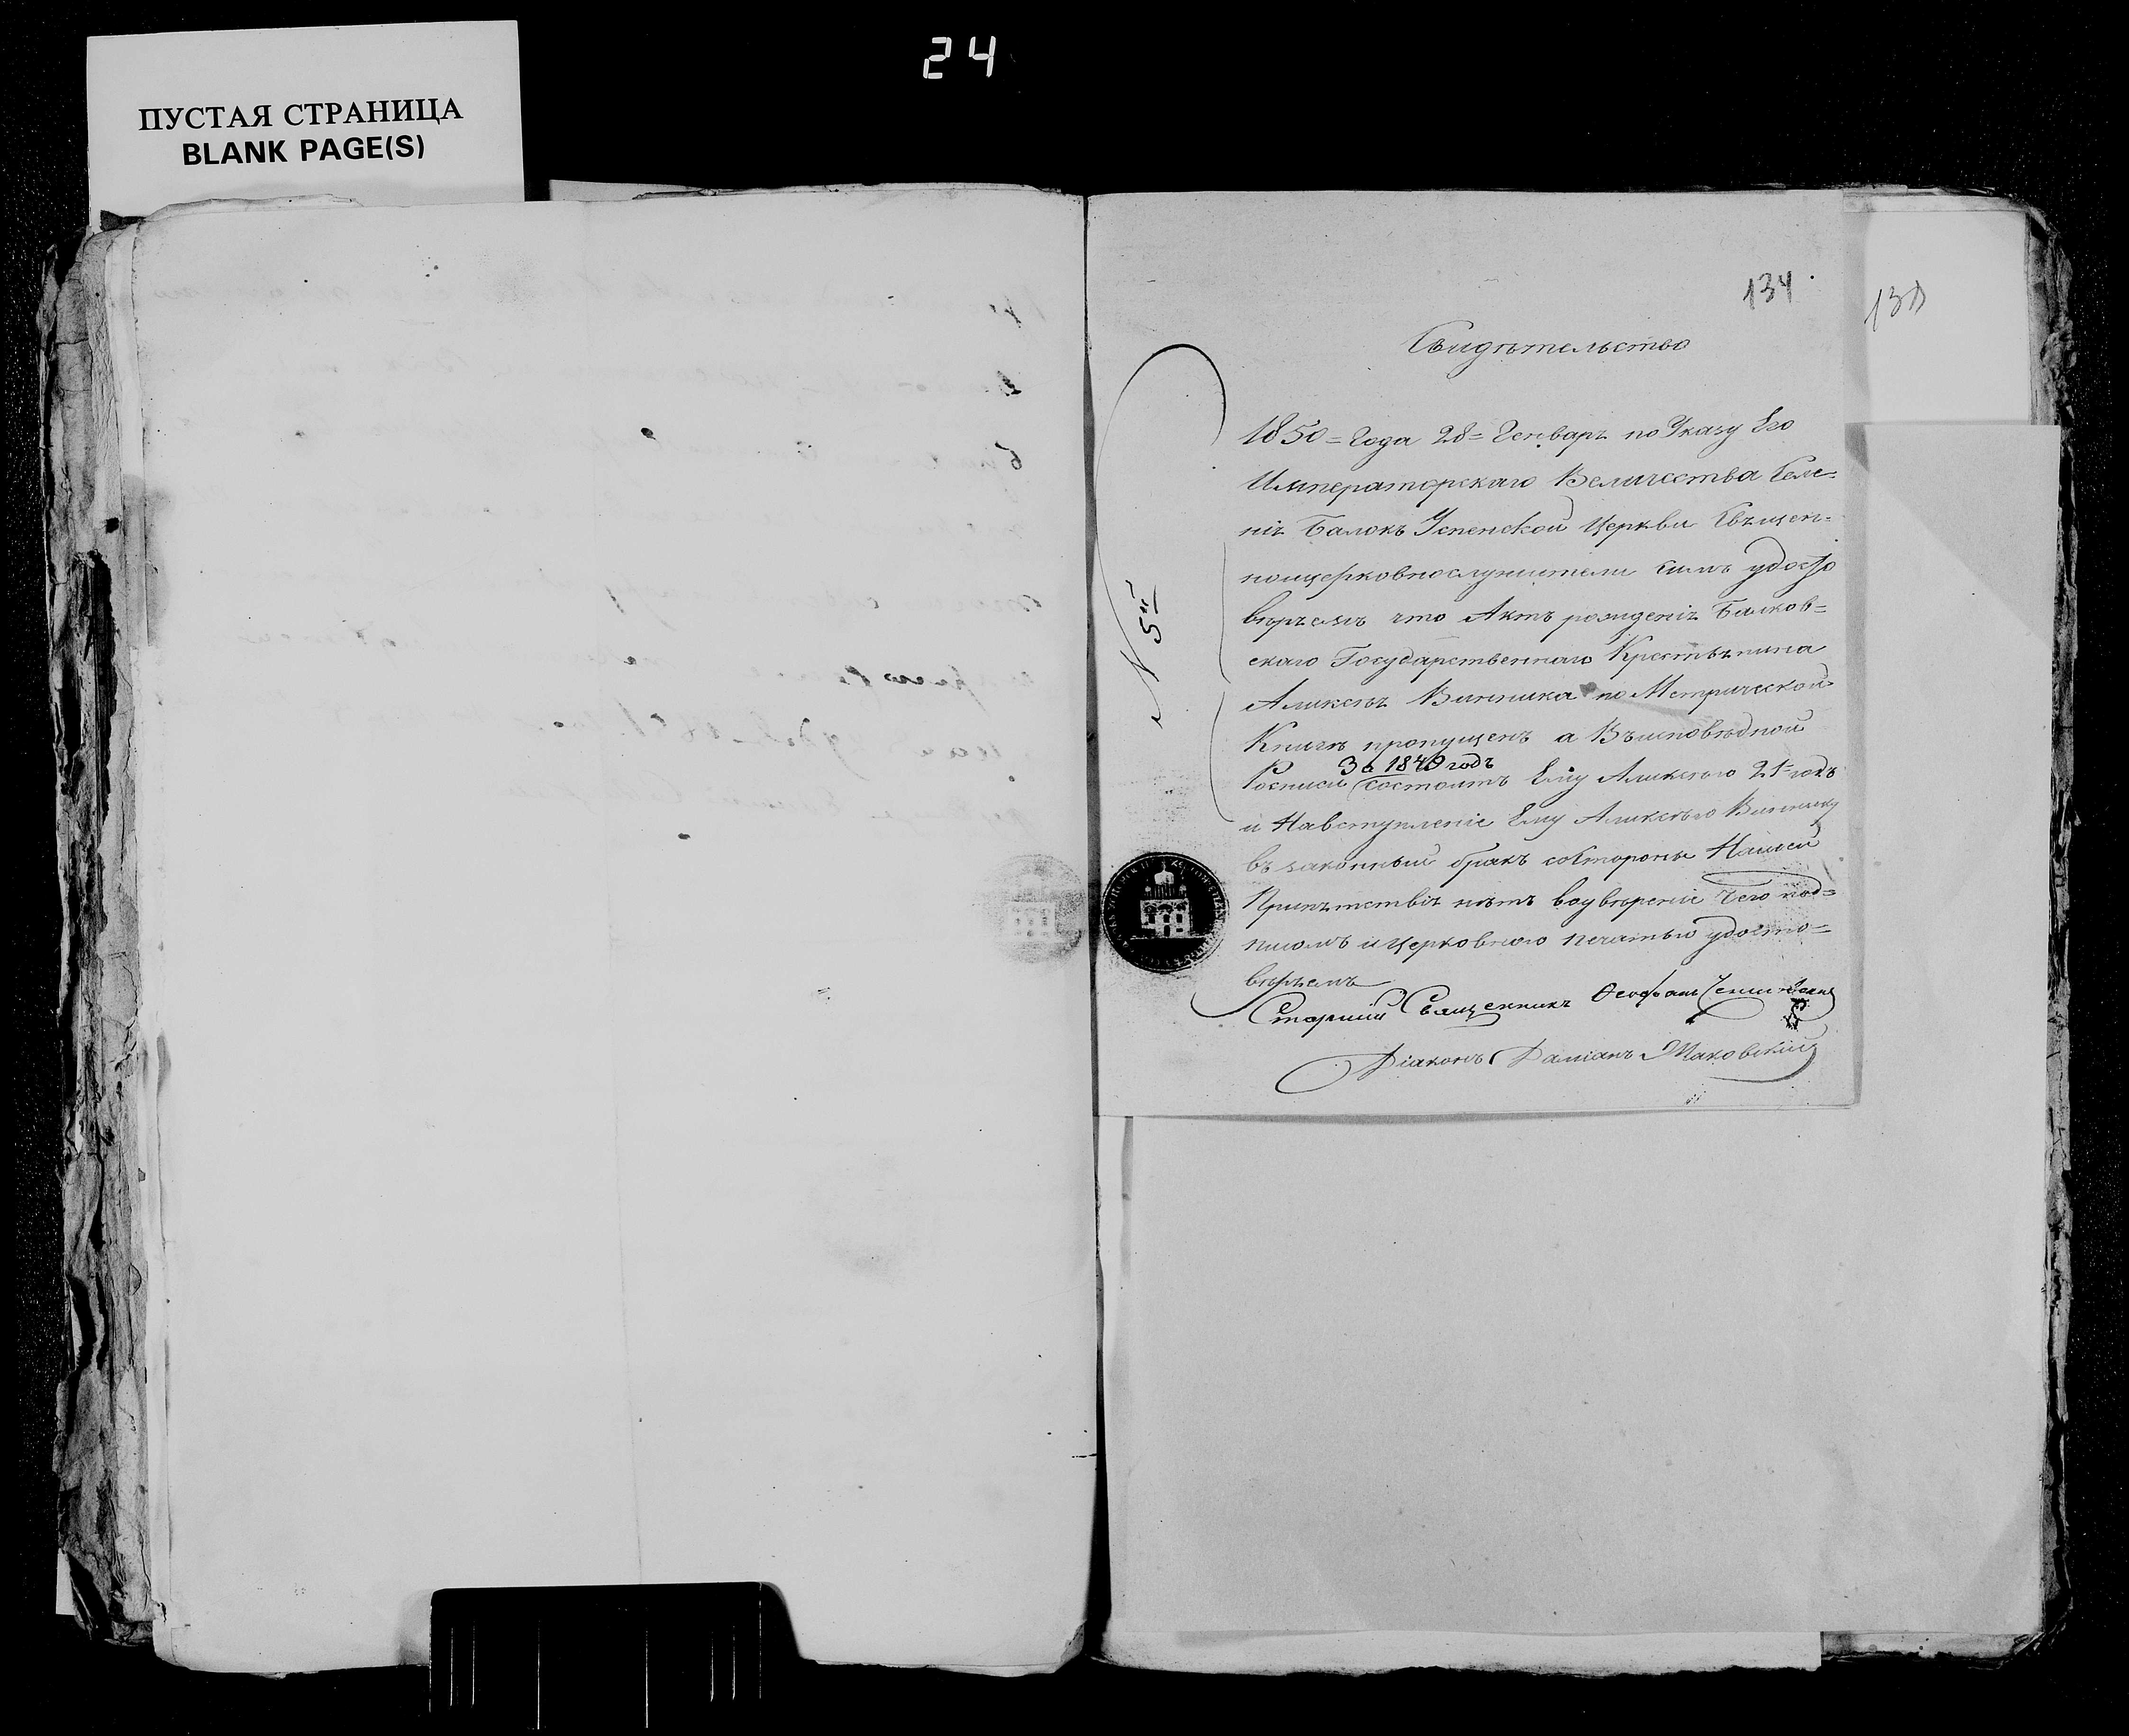 24
ПУСТАЯ СТРАНИЦА
BLANK PAGE(S)
134
Свидѣтельство
1850 = Года 28 = Генваря по Указу Его
Императорскаго Величества Селе=
нія Балокъ Успенской Церкви Священ=
ноцерковнослужители симъ удосто
вѣряемъ что Актъ рожденія Балков=
скаго Государственнаго Крестьянина
Аликсѣя Винника по Метрической
Книгѣ пропущенъ а Въисповѣдной
За 1849 годъ
Росписи состоитъ Ему Аликсѣю 21= годъ
и Навступленіе Ему Аликсѣю Виннику
въ законный бракъ состороны Нашей
Припятствія нѣтъ воувѣреніе Чего под=
писомъ и Церковною печатью удосто=
вѣряемъ
Старшій Священникъ Ѳеофанъ
Діаконъ Даміанъ Маковскій
N 5й